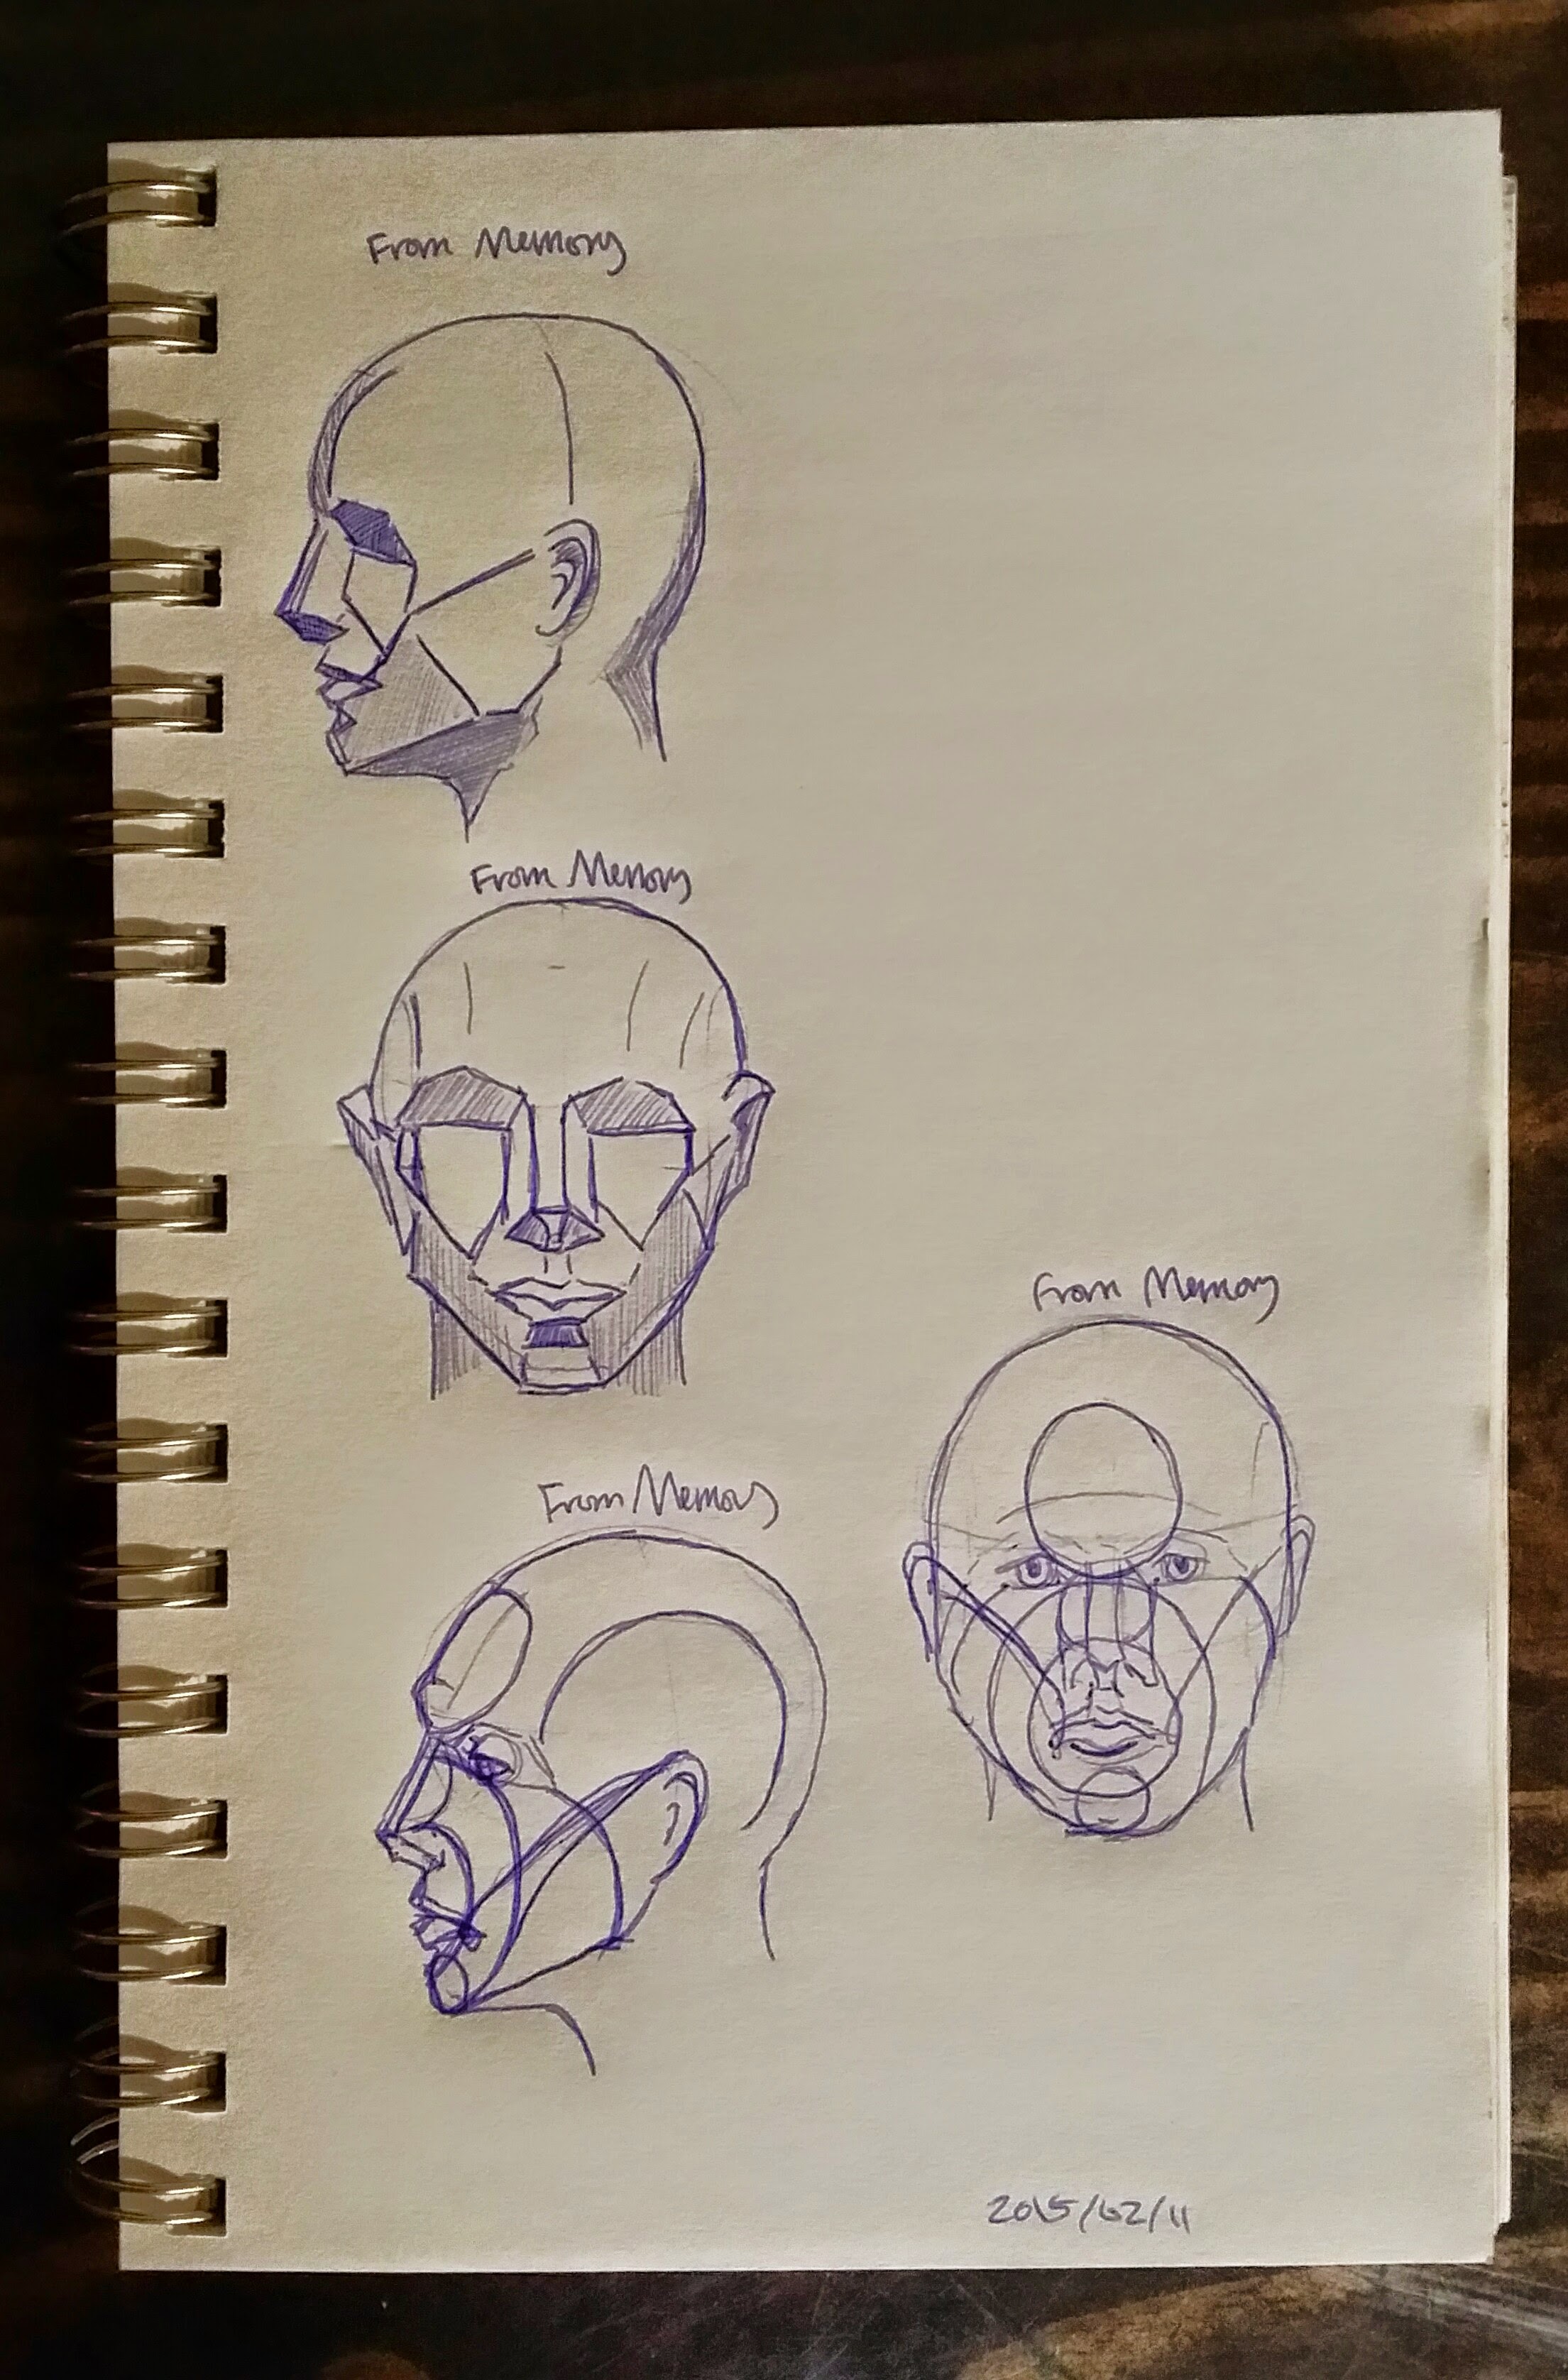 From Memory
From Memory
From Memory
From Memory
2015/02/11